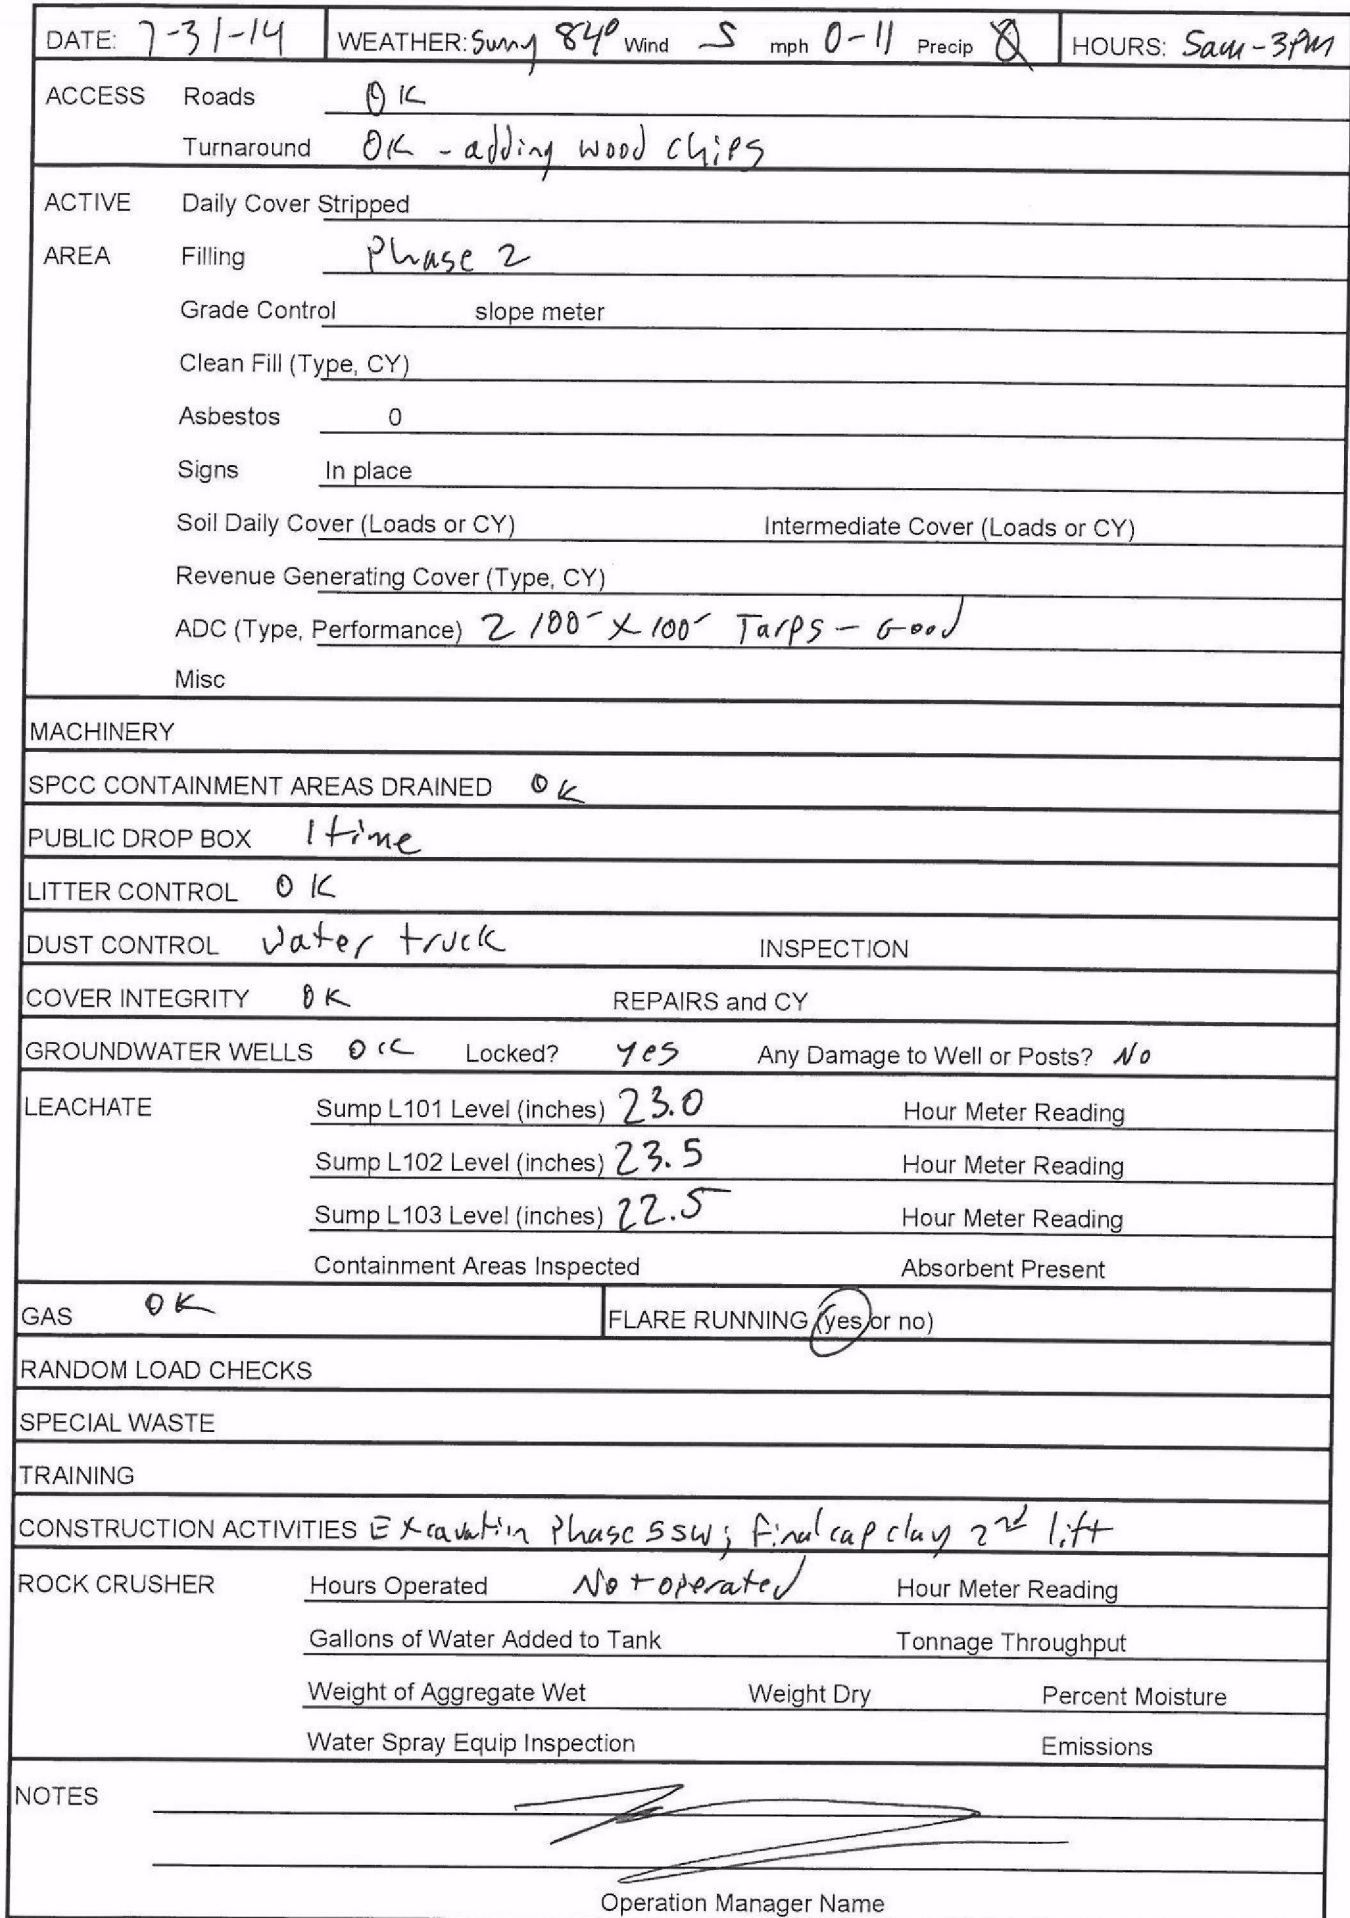 DATE: 7-31-14 WEATHER: Sunny 84° Wind S mph 0-11 Precip 0 HOURS: 5am-3PM
ACCESS Roads OK
Turnaround OK - adding wood chips
ACTIVE Daily Cover Stripped
AREA Filling Phase 2
Grade Control slope meter
Clean Fill (Type, CY)
Asbestos 0
Signs In place
Soil Daily Cover (Loads or CY) Intermediate Cover (Loads or CY)
Revenue Generating Cover (Type, CY)
ADC (Type, Performance) 2 100' X 100' Tarps - Good
Misc
MACHINERY
SPCC CONTAINMENT AREAS DRAINED OK
PUBLIC DROP BOX 1 time
LITTER CONTROL OK
DUST CONTROL Water truck INSPECTION
COVER INTEGRITY OK REPAIRS and CY
GROUNDWATER WELLS OK Locked? yes Any Damage to Well or Posts? No
LEACHATE Sump L101 Level (inches) 23.0 Hour Meter Reading
Sump L102 Level (inches) 23.5 Hour Meter Reading
Sump L103 Level (inches) 22.5 Hour Meter Reading
Containment Areas Inspected Absorbent Present
GAS OK FLARE RUNNING (yes or no)
RANDOM LOAD CHECKS
SPECIAL WASTE
TRAINING
CONSTRUCTION ACTIVITIES Excavatin Phase 5SW; Final cap clay 2nd lift
ROCK CRUSHER Hours Operated Not operated Hour Meter Reading
Gallons of Water Added to Tank Tonnage Throughput
Weight of Aggregate Wet Weight Dry Percent Moisture
Water Spray Equip Inspection Emissions
NOTES
Operation Manager Name